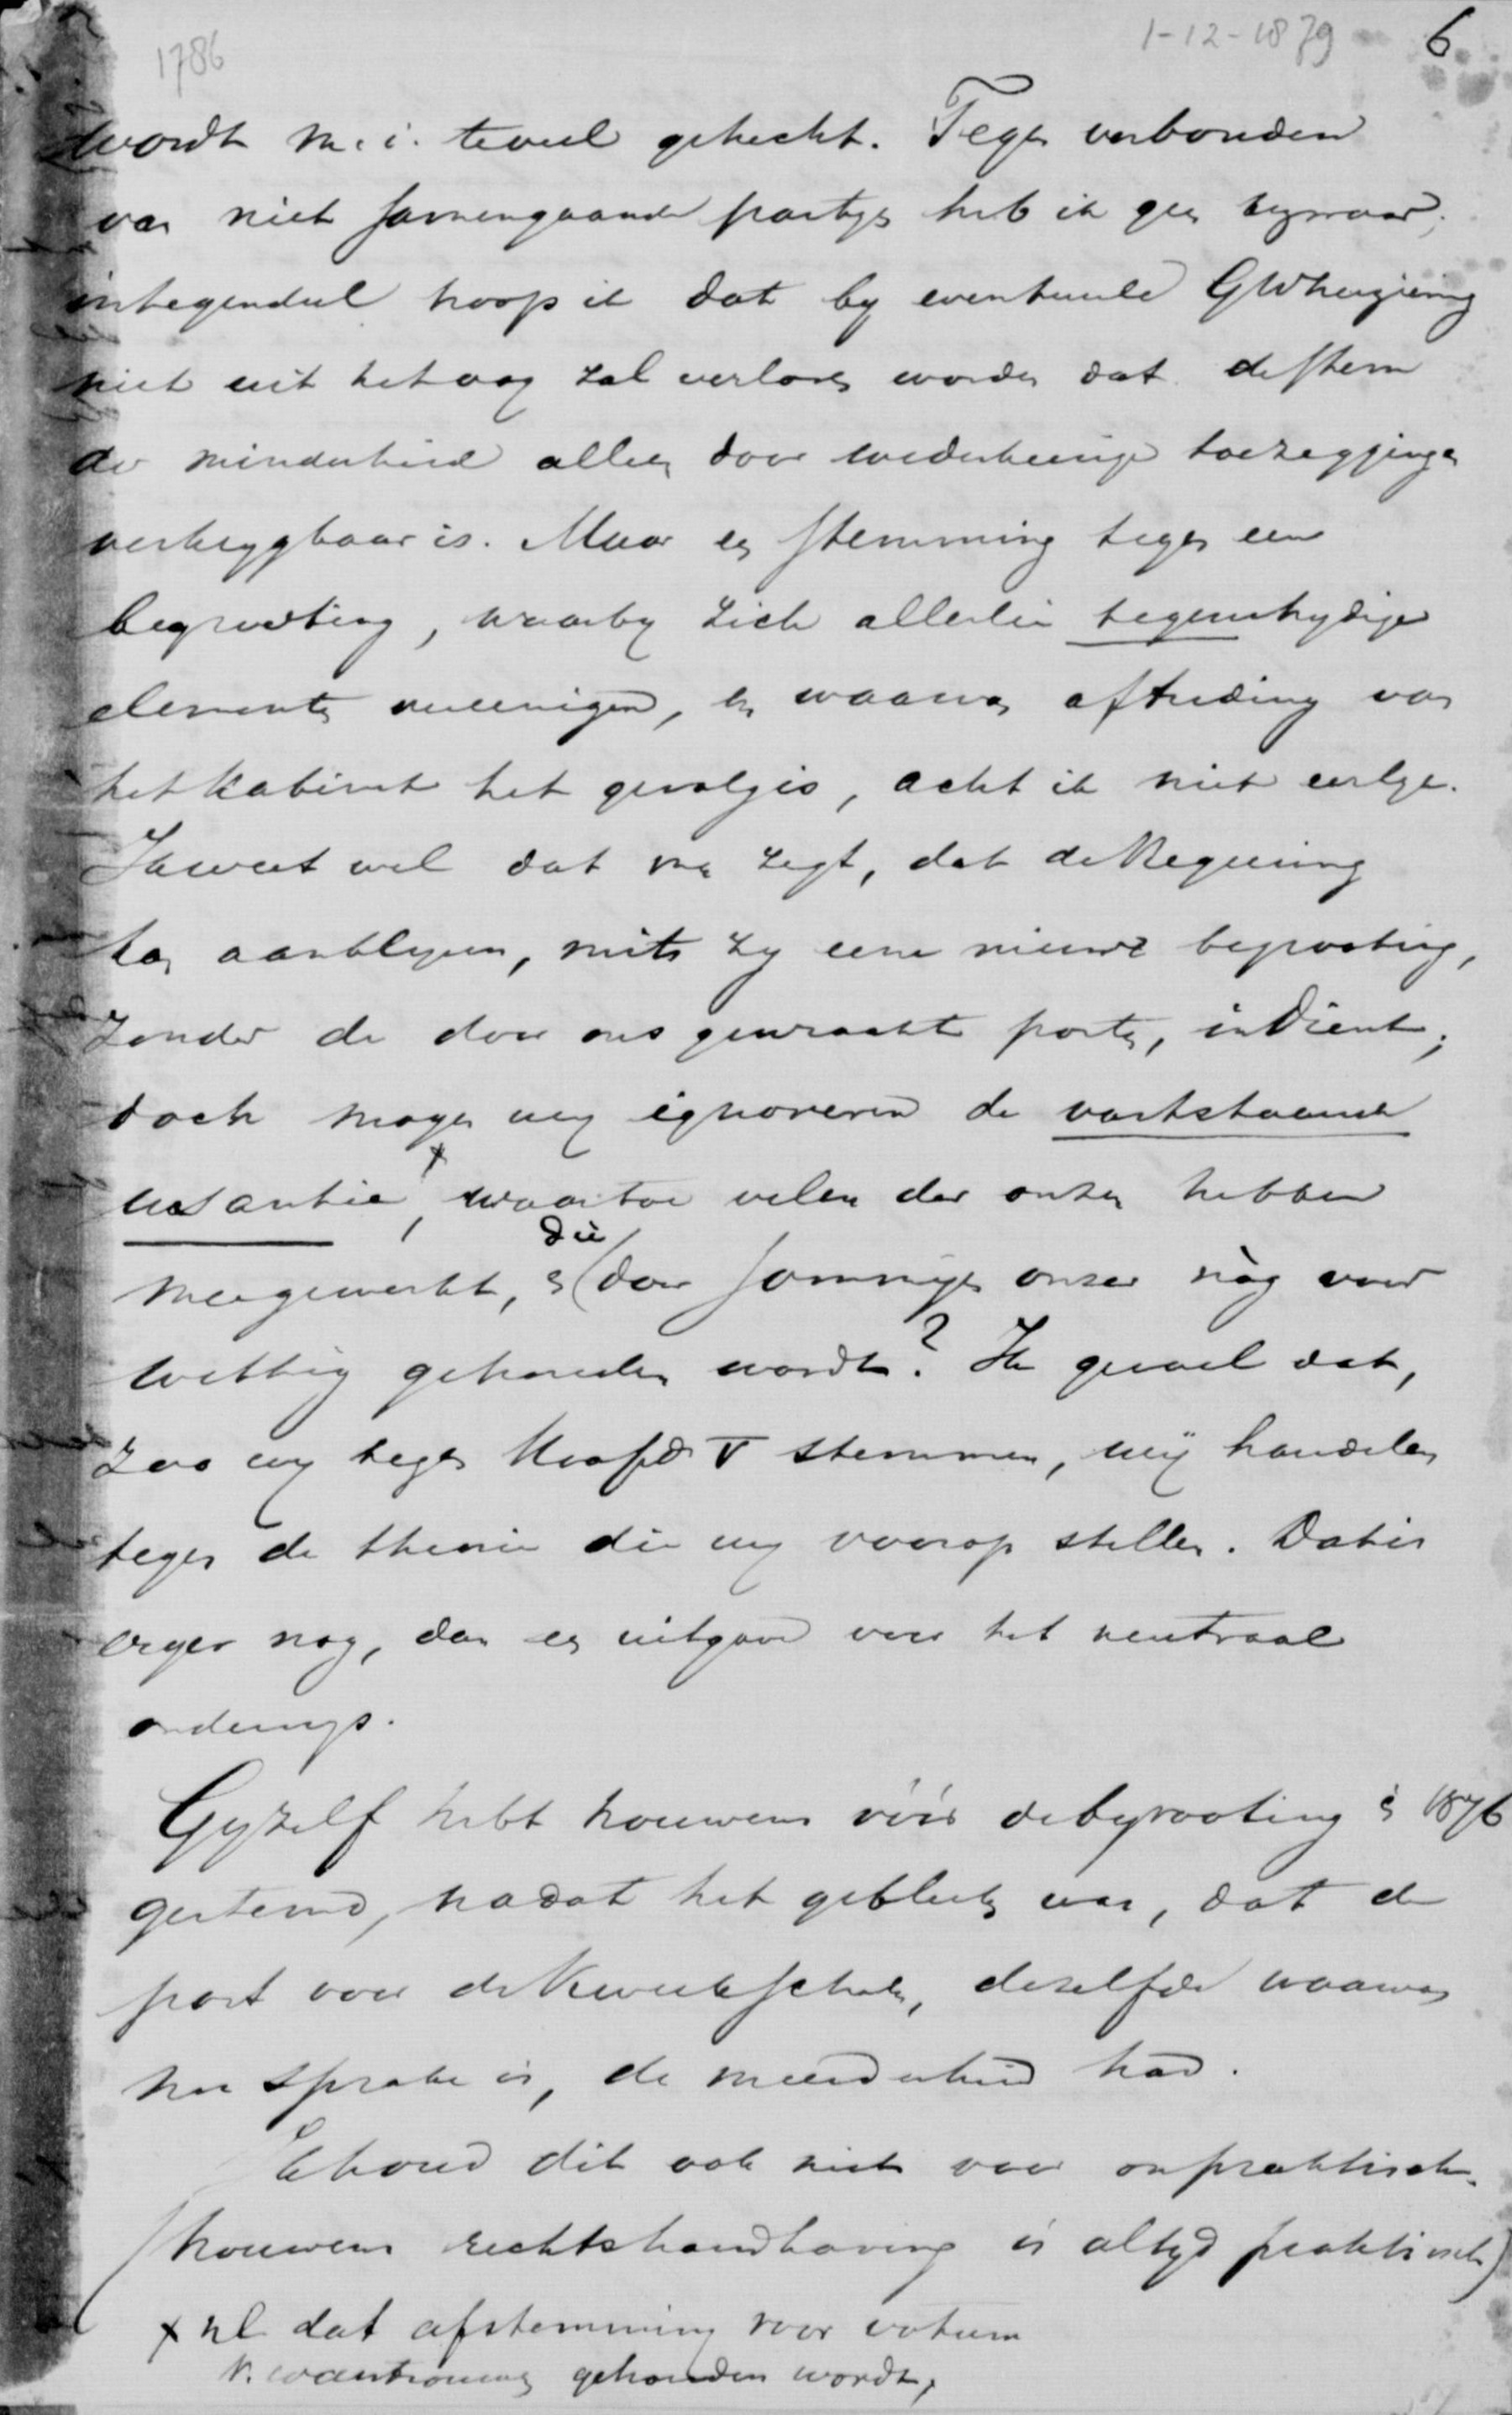 1786
1-12-1879 6
wordt m.i. teveel gehecht. Tegen verbonden
van niet samengaande partyen heb ik geen bezwaar;
integendeel hoop ik dat by eventueele GWherziening
niet uit het oog zal verloren worden dat de stem
der minderheid alleen door wederkeerige toezeggingen
verkrygbaar is. Maar een stemming tegen een
begrooting, waarby zich allerlei tegenstrydige
elementen vereenigen, en waarvan aftreding van
het kabinet het gevolg is, acht ik niet eerlyk.
Ik weet wel dat men zegt, dat de Regeering
kan aanblyven, mits zy eene nieuwe begrooting,
zonder de door ons gewraakte posten, indient;
doch mogen wy ignoreren de vaststaande
usantie x, waartoe velen der onzen hebben
meegewerkt, en die door sommigen onzer nòg voor
wettig gehouden wordt? Ik gevoel dat,
zoo wy tegen Hoofd. V stemmen, wij handelen
tegen de theorie die wy voorop stellen. Dat is
erger nog, dan een uitgave voor het neutraal
onderwys.
Gyzelf hebt trouwens vóór de begrooting in 1876
gestemd, nadat het gebleken was, dat de
post voor de Kweekscholen, dezelfde waarvan
nu sprake is, de meerderheid had.
Ik houd dit ook niet voor onpraktisch.
(trouwens rechtshandhaving is altyd praktisch)
x nl dat afstemming voor votum
v. wantrouwen gehouden wordt,